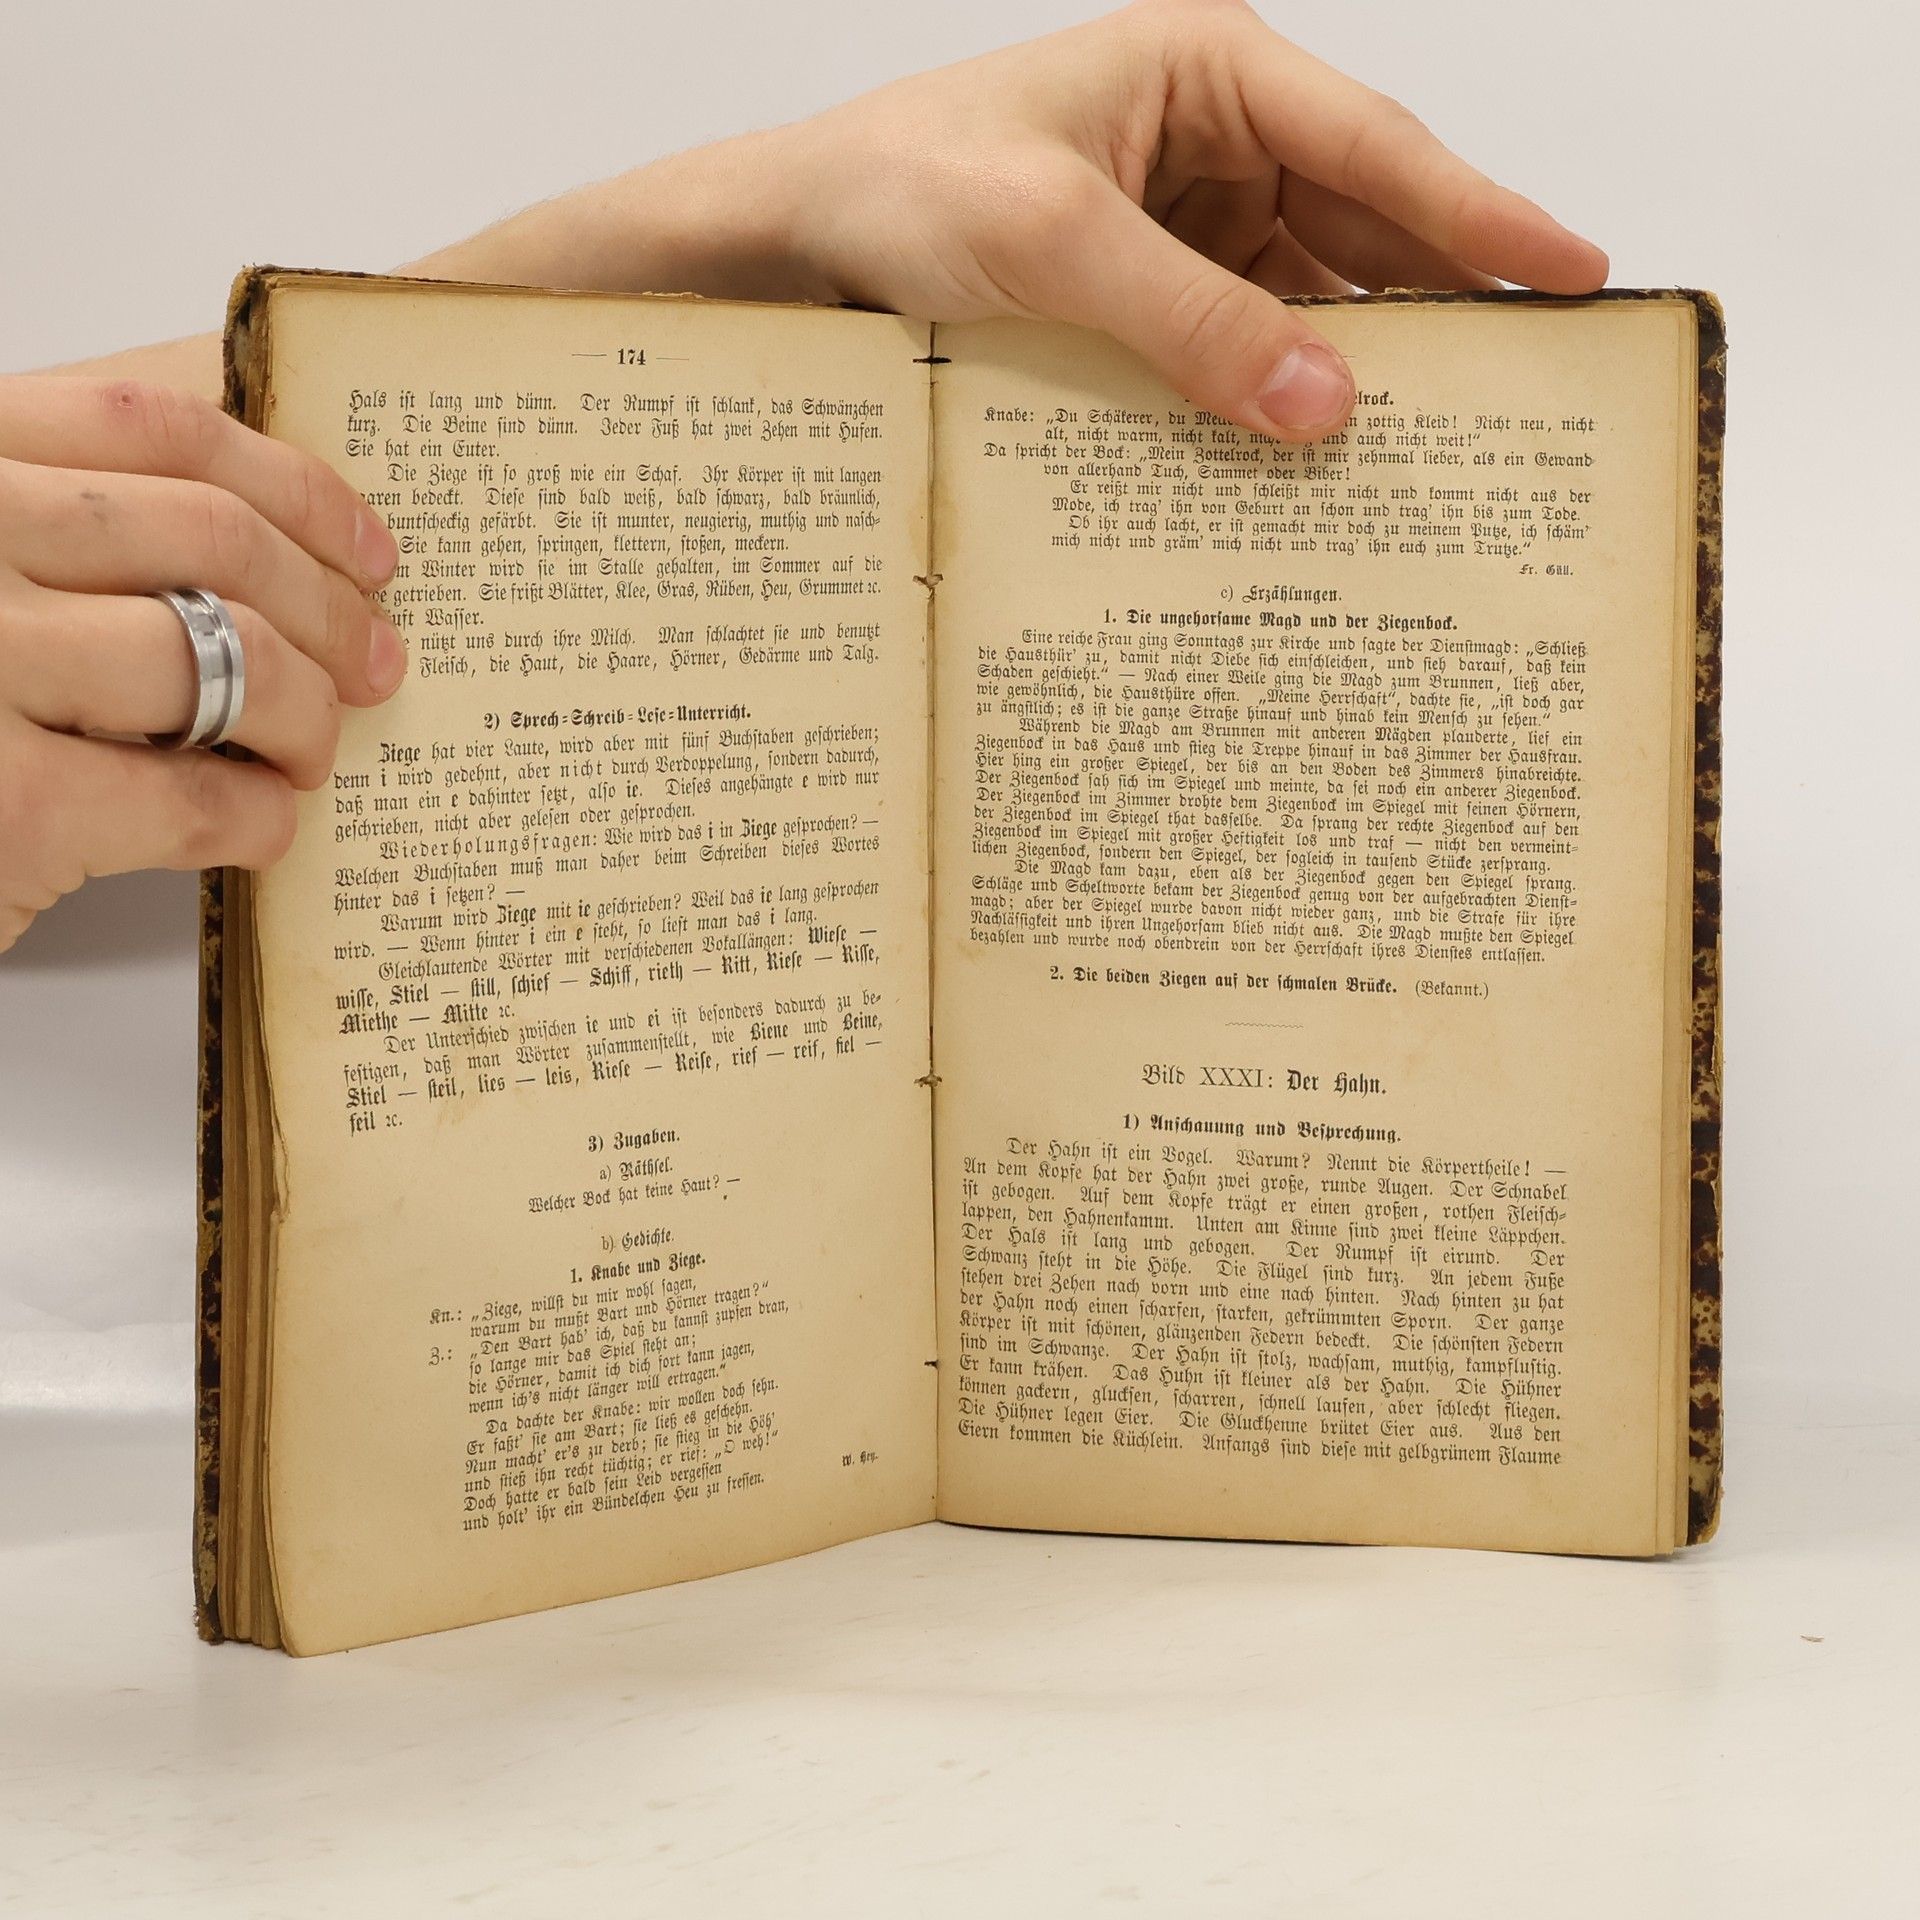 — 174 —
Hals ist lang und dünn. Der Rumpf ist schlank, das Schwänzchen
kurz. Die Beine sind dünn. Jeder Fuß hat zwei Zehen mit Hufen.
Sie hat ein Euter.
Die Ziege ist so groß wie ein Schaf. Ihr Körper ist mit langen
aaren bedeckt. Diese sind bald weiß, bald schwarz, bald bräunlich,
buntscheckig gefärbt. Sie ist munter, neugierig, muthig und nasch-
Sie kann gehen, springen, klettern, stoßen, meckern.
m Winter wird sie im Stalle gehalten, im Sommer auf die
de getrieben. Sie frißt Blätter, Klee, Gras, Rüben, Heu, Grummet ꝛc.
uft Wasser.
e nützt uns durch ihre Milch. Man schlachtet sie und benutzt
Fleisch, die Haut, die Haare, Hörner, Gedärme und Talg.
2) Sprech-Schreib-Lese-Unterricht.
Ziege hat vier Laute, wird aber mit fünf Buchstaben geschrieben;
denn i wird gedehnt, aber nicht durch Verdoppelung, sondern dadurch,
daß man ein e dahinter setzt, also ie. Dieses angehängte e wird nur
geschrieben, nicht aber gelesen oder gesprochen.
Wiederholungsfragen: Wie wird das i in Ziege gesprochen? —
Welchen Buchstaben muß man daher beim Schreiben dieses Wortes
hinter das i setzen? —
Warum wird Ziege mit ie geschrieben? Weil das ie lang gesprochen
wird. — Wenn hinter i ein e steht, so liest man das i lang.
Gleichlautende Wörter mit verschiedenen Vokallängen: Wiese —
wisse, Stiel — still, schief — Schiff, rieth — Ritt, Riese — Risse,
Miethe — Mitte ꝛc.
Der Unterschied zwischen ie und ei ist besonders dadurch zu be-
festigen, daß man Wörter zusammenstellt, wie Biene und Beine,
Stiel — steil, lies — leis, Riese — Reise, rief — reif, fiel —
feil ꝛc.
3) Zugaben.
a) Räthsel.
Welcher Bock hat keine Haut? —
b) Gedichte.
1. Knabe und Ziege.
Kn.: „Ziege, willst du mir wohl sagen,
warum du mußt Bart und Hörner tragen?“
Z.: „Den Bart hab' ich, daß du kannst zupfen dran,
so lange mir das Spiel steht an;
die Hörner, damit ich dich fort kann jagen,
wenn ich's nicht länger will ertragen.“
Da dachte der Knabe: wir wollen doch sehn.
Er faßt' sie am Bart; sie ließ es geschehn.
Nun macht' er's zu derb; sie stieg in die Höh'
und stieß ihn recht tüchtig; er rief: „O weh!“
Doch hatte er bald sein Leid vergessen
und holt' ihr ein Bündelchen Heu zu fressen.
W. Hey.
elrock.
Knabe: „Du Schäkerer, du n zottig Kleid! Nicht neu, nicht
alt, nicht warm, nicht kalt, und auch nicht weit!“
Da spricht der Bock: „Mein Zottelrock, der ist mir zehnmal lieber, als ein Gewand
von allerhand Tuch, Sammet oder Biber!
Er reißt mir nicht und schleißt mir nicht und kommt nicht aus der
Mode, ich trag' ihn von Geburt an schon und trag' ihn bis zum Tode.
Ob ihr auch lacht, er ist gemacht mir doch zu meinem Putze, ich schäm'
mich nicht und gräm' mich nicht und trag' ihn euch zum Trutze.“
Fr. Güll.
c) Erzählungen.
1. Die ungehorsame Magd und der Ziegenbock.
Eine reiche Frau ging Sonntags zur Kirche und sagte der Dienstmagd: „Schließ
die Hausthür' zu, damit nicht Diebe sich einschleichen, und sieh darauf, daß kein
Schaden geschieht.“ — Nach einer Weile ging die Magd zum Brunnen, ließ aber,
wie gewöhnlich, die Hausthüre offen. „Meine Herrschaft“, dachte sie, „ist doch gar
zu ängstlich; es ist die ganze Straße hinauf und hinab kein Mensch zu sehen.“
Während die Magd am Brunnen mit anderen Mägden plauderte, lief ein
Ziegenbock in das Haus und stieg die Treppe hinauf in das Zimmer der Hausfrau.
Hier hing ein großer Spiegel, der bis an den Boden des Zimmers hinabreichte.
Der Ziegenbock sah sich im Spiegel und meinte, da sei noch ein anderer Ziegenbock.
Der Ziegenbock im Zimmer drohte dem Ziegenbock im Spiegel mit seinen Hörnern,
der Ziegenbock im Spiegel that dasselbe. Da sprang der rechte Ziegenbock auf den
Ziegenbock im Spiegel mit großer Heftigkeit los und traf — nicht den vermeint-
lichen Ziegenbock, sondern den Spiegel, der sogleich in tausend Stücke zersprang.
Die Magd kam dazu, eben als der Ziegenbock gegen den Spiegel sprang.
Schläge und Scheltworte bekam der Ziegenbock genug von der aufgebrachten Dienst-
magd; aber der Spiegel wurde davon nicht wieder ganz, und die Strafe für ihre
Nachlässigkeit und ihren Ungehorsam blieb nicht aus. Die Magd mußte den Spiegel
bezahlen und wurde noch obendrein von der Herrschaft ihres Dienstes entlassen.
2. Die beiden Ziegen auf der schmalen Brücke. (Bekannt.)
Bild XXXI: Der Hahn.
1) Anschauung und Besprechung.
Der Hahn ist ein Vogel. Warum? Nennt die Körpertheile! —
An dem Kopfe hat der Hahn zwei große, runde Augen. Der Schnabel
ist gebogen. Auf dem Kopfe trägt er einen großen, rothen Fleisch-
lappen, den Hahnenkamm. Unten am Kinne sind zwei kleine Läppchen.
Der Hals ist lang und gebogen. Der Rumpf ist eirund. Der
Schwanz steht in die Höhe. Die Flügel sind kurz. An jedem Fuße
stehen drei Zehen nach vorn und eine nach hinten. Nach hinten zu hat
der Hahn noch einen scharfen, starken, gekrümmten Sporn. Der ganze
Körper ist mit schönen, glänzenden Federn bedeckt. Die schönsten Federn
sind im Schwanze. Der Hahn ist stolz, wachsam, muthig, kampflustig.
Er kann krähen. Das Huhn ist kleiner als der Hahn. Die Hühner
können gackern, glucksen, scharren, schnell laufen, aber schlecht fliegen.
Die Hühner legen Eier. Die Gluckhenne brütet Eier aus. Aus den
Eiern kommen die Küchlein. Anfangs sind diese mit gelbgrünem Flaume